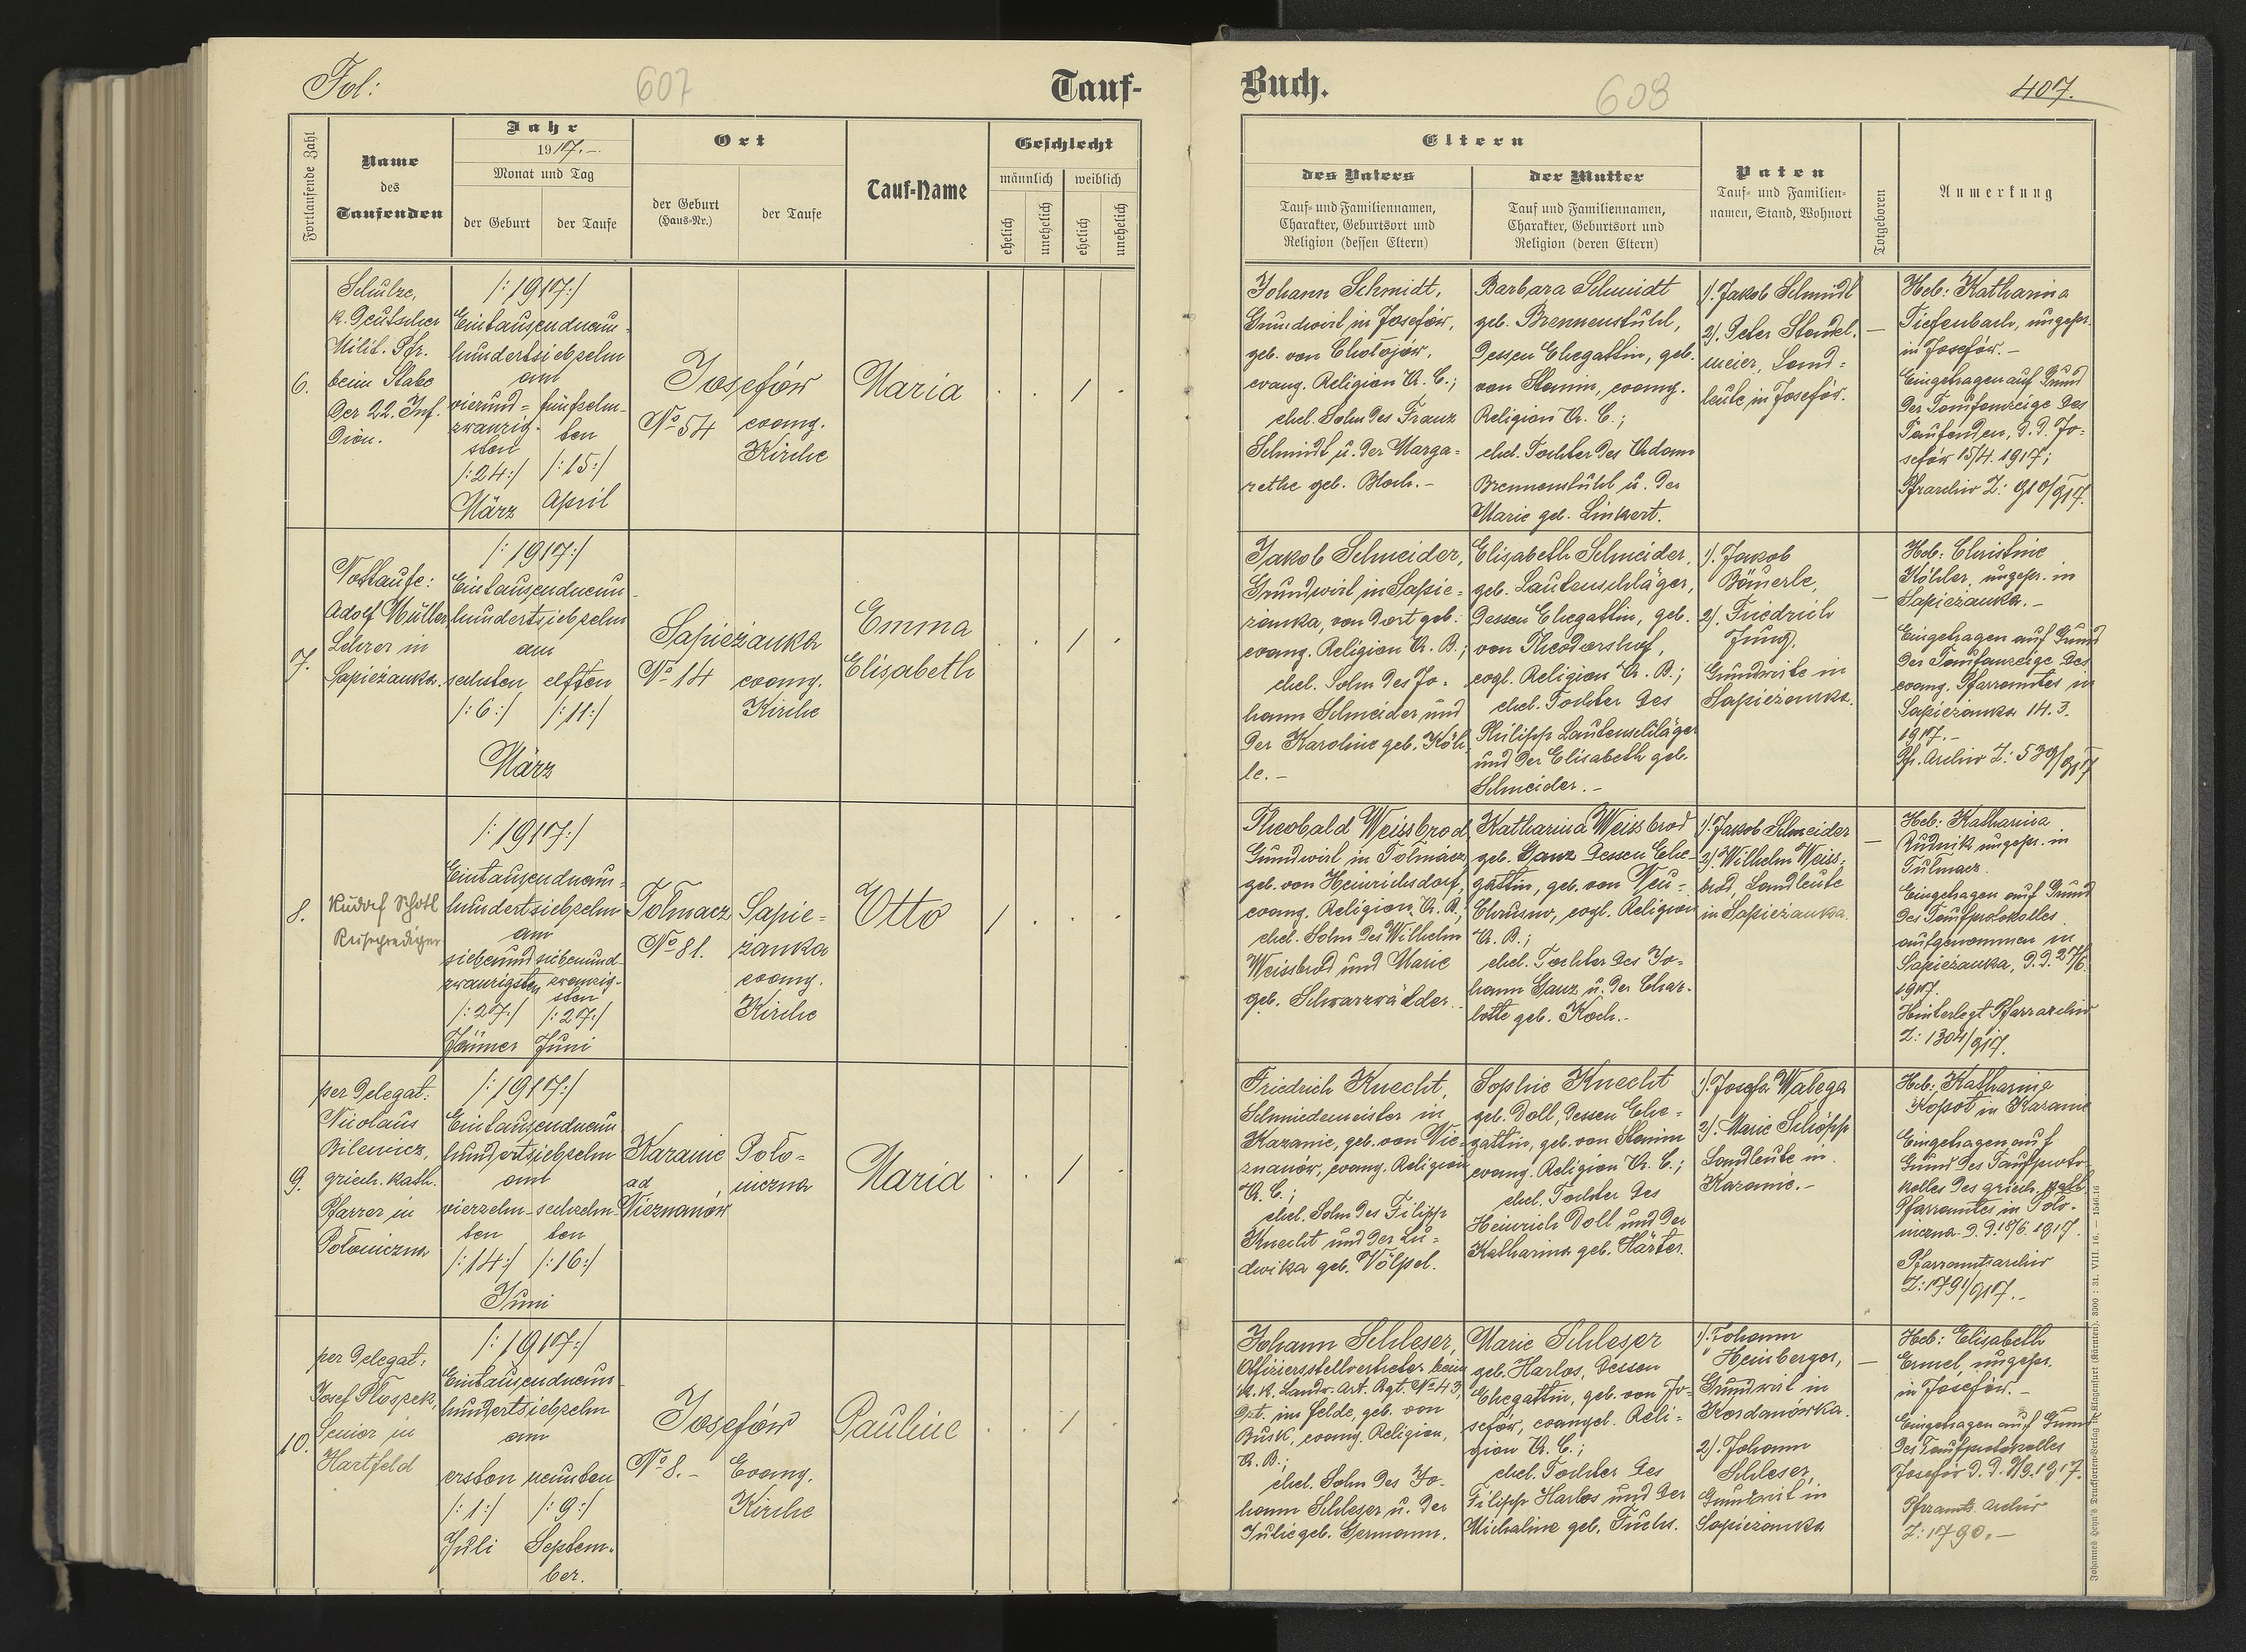 Fol:
607
Tauf-
Fortlaufende Zahl
Name
des
Taufenden
Jahr
1917.-
Monat und Tag
der Geburt
der Taufe
Ort
der Geburt
(Haus-Nr.)
der Taufe
Tauf-Name
Geschlecht
männlich
weiblich
ehelich
unehelich
ehelich
unehelich
6.
Schulze,
k. Deutscher
Milit. Pfr.
beim Stabe
der 22. Inf.
Dion.
/:1917:/
Eintausendneun-
hundertsiebzehn
am
vierund=
zwanzig-
sten
/:24:/
März
fünfzehn-
ten
/:15:/
April
Josefów
No 54
evang.
Kirche
Maria
. . / .
7.
Nottaufe:
Adolf Müller,
Lehrer in
Sapieżanka.
/:1917:/
Eintausendneun-
hundertsiebzehn
am
sechsten elften
/:6:/ /:11:/
März
Sapieżanka
No 14
evang.
Kirche
Emma
Elisabeth
. . / .
8.
Rudolf Schott
Reiseprediger
/:1917:/
Eintausendneun-
hundertsiebzehn
am
siebenund
zwanzigsten
/:27:/
Jänner
siebenund-
zwanzig-
sten
/:27:/
Juni
Tolmacz
No 81.
Sapie=
żanka
evang.
Kirche
Otto
/ . . .
9.
per Delegat:
Nicolaus
Bilewicz,
griech. kath.
Pfarrer in
Połoniczna
/:1917:/
Eintausendneun
hundertsiebzehn
am
vierzehn-
ten
/:14:/
sechzehn-
ten
/:16:/
Juni
Kazanie
ad
Wieznanów
Poło=
niczna
Maria
. . / .
10.
per Delegat.
Josef Ploszek,
Senior in
Hartfeld
/:1917:/
Eintausendneun-
hundertsiebzehn
am
ersten neunten
/:1:/ /:9:/
Juli Septem-
ber.
Josefów
No 8.-
Evang.
Kirche
Pauline
. . / .
Buch.
608
407.
Eltern
des Vaters
Tauf- und Familiennamen,
Charakter, Geburtsort und
Religion (dessen Eltern)
der Mutter
Tauf und Familiennamen,
Charakter, Geburtsort und
Religion (deren Eltern)
Paten
Tauf- und Familien-
namen, Stand, Wohnort
Totgeboren
Anmerkung
Johann Schmidt,
Grundwirt in Josefów,
geb. von Chołojów,
evang. Religion A. C.;
ehel. Sohn des Franz
Schmidt u. der Marga=
rethe geb. Bloch.-
Barbara Schmidt
geb. Brennenstuhl,
dessen Ehegattin, geb.
von Stanin, evang.
Religion A. C.;
ehel. Tochter des Adam
Brennenstuhl u. der
Marie geb. Linkert.
1). Jakob Schmidt
2). Peter Standel.
meier, Land=
leute in Josefów.
—
Heb: Katharina
Tiefenbach, ungepr.
in Josefów.-
Eingetragen auf Grund
der Taufanzeige des
Taufenden, d. d. Jo=
sefów 15/4. 1917;
Pfrarchiv Z: 910/917.
Jakob Schneider,
Grundwirt in Sapie=
żanka, von dort geb:
evang. Religion A. B.;
ehel. Sohn des Jo-
hann Schneider und
der Karoline geb. Köh
le.-
Elisabeth Schneider,
geb. Lautenschläger,
dessen Ehegattin, geb.
von Theodorshof,
evgl. Religion A. B.;
ehel. Tochter des
Philipp Lautenschläger
und der Elisabeth geb.
Schneider.-
1). Jakob
Bäuerle,
2). Friedrich
Jung,
Grundwirte in
Sapieżanka.
—
Heb: Christine
Köhler, ungepr. in
Sapieżanka.-
Eingetragen auf Grund
der Taufanzeige des
evang. Pfarramtes in
Sapieżanka 14.3.
1917.-
Pfr. Archiv Z: 539/917
Theobald Weissbrod
Grundwirt in Tołmacz
geb. von Heinrichsdorf,
evang. Religion A. B.;
ehel. Sohn des Wilhelm
Weissbrod und Marie
geb. Schwarzwälder.
Katharina Weissbrod
geb. Ganz dessen Ehe-
gattin, geb. von Neu=
Chrusno, evgl. Religion
A. B.;
ehel. Tochter des Jo=
hann Ganz u. der Char-
lotte geb. Koch.-
1). Jakob Schneider
2). Wilhelm Weiss-
brod, Landleute
in Sapieżanka.
—
Heb: Katharina
Rudnik ungepr. in
Tulmacz.
Eingetragen auf Grund
des Taufprotokolles
aufgenommen in
Sapieżanka, d. d. 27/6.
1917.
Hinterlegt Pfarrarchiv
Z: 1304/917.
Friedrich Knecht,
Schmiedemeister in
Kazanie, geb. von Wie-
znanów, evang. Religion
A. C.;
ehel. Sohn des Filipp
Knecht und der Lu=
dwika geb. Völpel.
Sophie Knecht
geb. Doll, dessen Ehe=
gattin, geb. von Stanin
evang. Religion A. C.;
ehel. Tochter des
Heinrich Doll und der
Katharina geb. Härter.
1). Josefa Walega
2). Marie Schöpp
Landleute in
Kazanie.-
Heb: Katharina
Kopot in Kazanie
Eingetragen auf
Grund des Taufproto-
kolles des griech. kath.
Pfarramtes in Poło-
niczna d. d. 18/6 1917.
Pfarramtsarchiv
Z: 1791/917.-
Johann Schleser,
Offiziersstellvertreter beim
k. k. Landw. Art. Rgt. No 43,
dzt. im Felde, geb. von
Busk, evang. Religion,
A. B.;
ehel. Sohn des Jo-
hann Schleser u. der
Julie geb. Germann.
Marie Schleser
geb. Harlos, dessen
Ehegattin, geb. von Jo-
sefów, evangel. Reli=
gion A. C.;
ehel. Tochter des
Filipp Harlos und der
Michaline geb. Fuchs.
1). Johann
Heinberger,
Grundwirt in
Kordanówka.
2). Johann
Schleser,
Grundwirt in
Sapieżanka
—
Heb: Elisabeth
Ermel, ungepr.
in Josefów.-
Eingetragen auf Grund
des Taufprotokolles
Josefów d. d. 9/9. 1917.
Pframts. Archiv
Z: 1790.-
Johannes Heyn's Drucksorten-Verlag in Klagenfurt (Kärnten). 3000 : 31. VIII. 16. — 1546.16